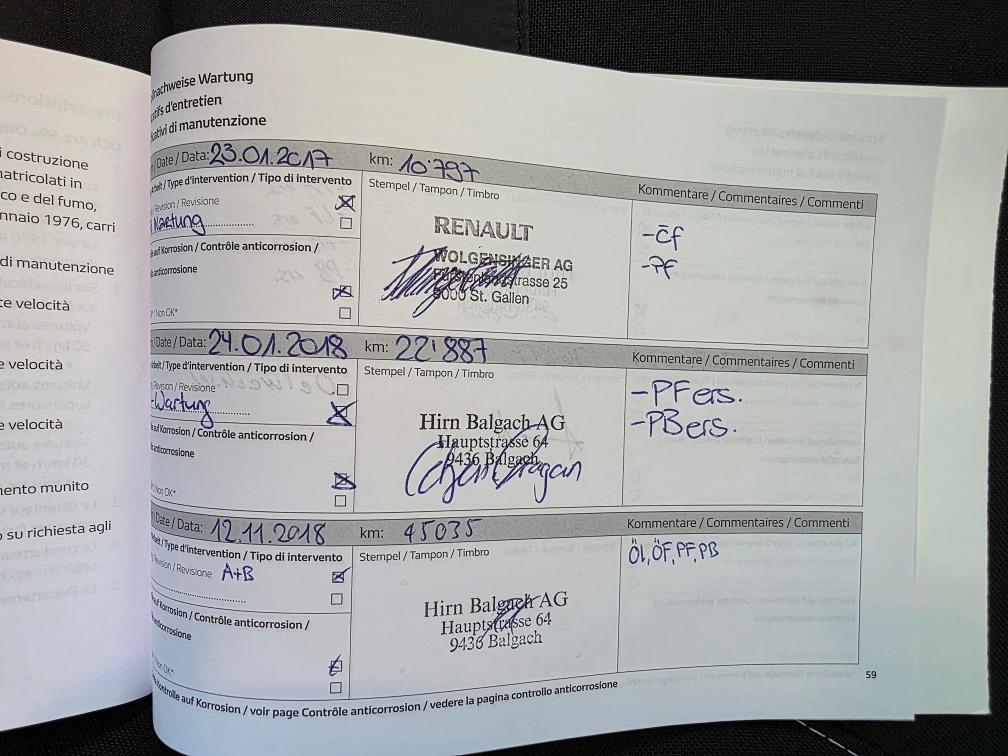 i costruzione
natricolati in
co e del fumo,
nnaio 1976, carri
di manutenzione
te velocità
e velocità
e velocità
nento munito
o su richiesta agli
nachweise Wartung
atifs d'entretien
cativi di manutenzione
Date / Data: 23.01.2017 km: 10'797
beit / Type d'intervention / Tipo di intervento
Stempel / Tampon / Timbro
Kommentare / Commentaires / Commenti
Revision / Revisione
Wartung
auf Korrosion / Contrôle anticorrosion /
anticorrosione
/ Non OK*
RENAULT
WOLGENSINGER AG
Fürstenlandstrasse 25
9000 St. Gallen
-PF
Date / Data: 24.01.2018 km: 22'887
beit / Type d'intervention / Tipo di intervento
Stempel / Tampon / Timbro
Kommentare / Commentaires / Commenti
Revision / Revisione
-Wartung
auf Korrosion / Contrôle anticorrosion /
anticorrosione
/ Non OK*
Hirn Balgach AG
Hauptstrasse 64
9436 Balgach
-PF ers.
-PB ers.
Date / Data: 12.11.2018 km: 45035
beit / Type d'intervention / Tipo di intervento
Stempel / Tampon / Timbro
Kommentare / Commentaires / Commenti
Revision / Revisione A+B
auf Korrosion / Contrôle anticorrosion /
anticorrosione
/ Non OK*
Hirn Balgach AG
Hauptstrasse 64
9436 Balgach
Öl, ÖF, PF, PB
e Kontrolle auf Korrosion / voir page Contrôle anticorrosion / vedere la pagina controllo anticorrosione
59